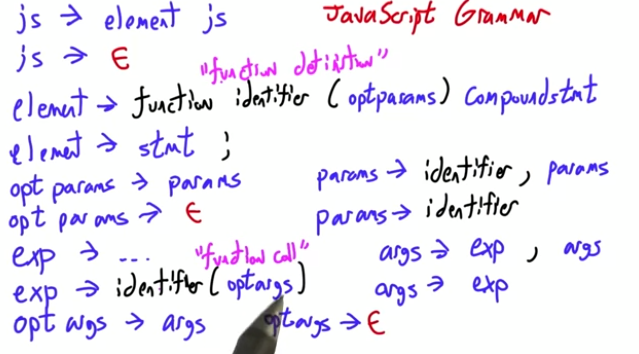 js → element js JavaScript Grammar
js → ϵ
"function definition"
element → function identifier (optparams) compoundstmt
element → stmt ;
opt params → params params → identifier, params
opt params → ϵ params → identifier
exp → ... "function call" args → exp , args
exp → identifier(optargs) args → exp
opt args → args optargs → ϵ